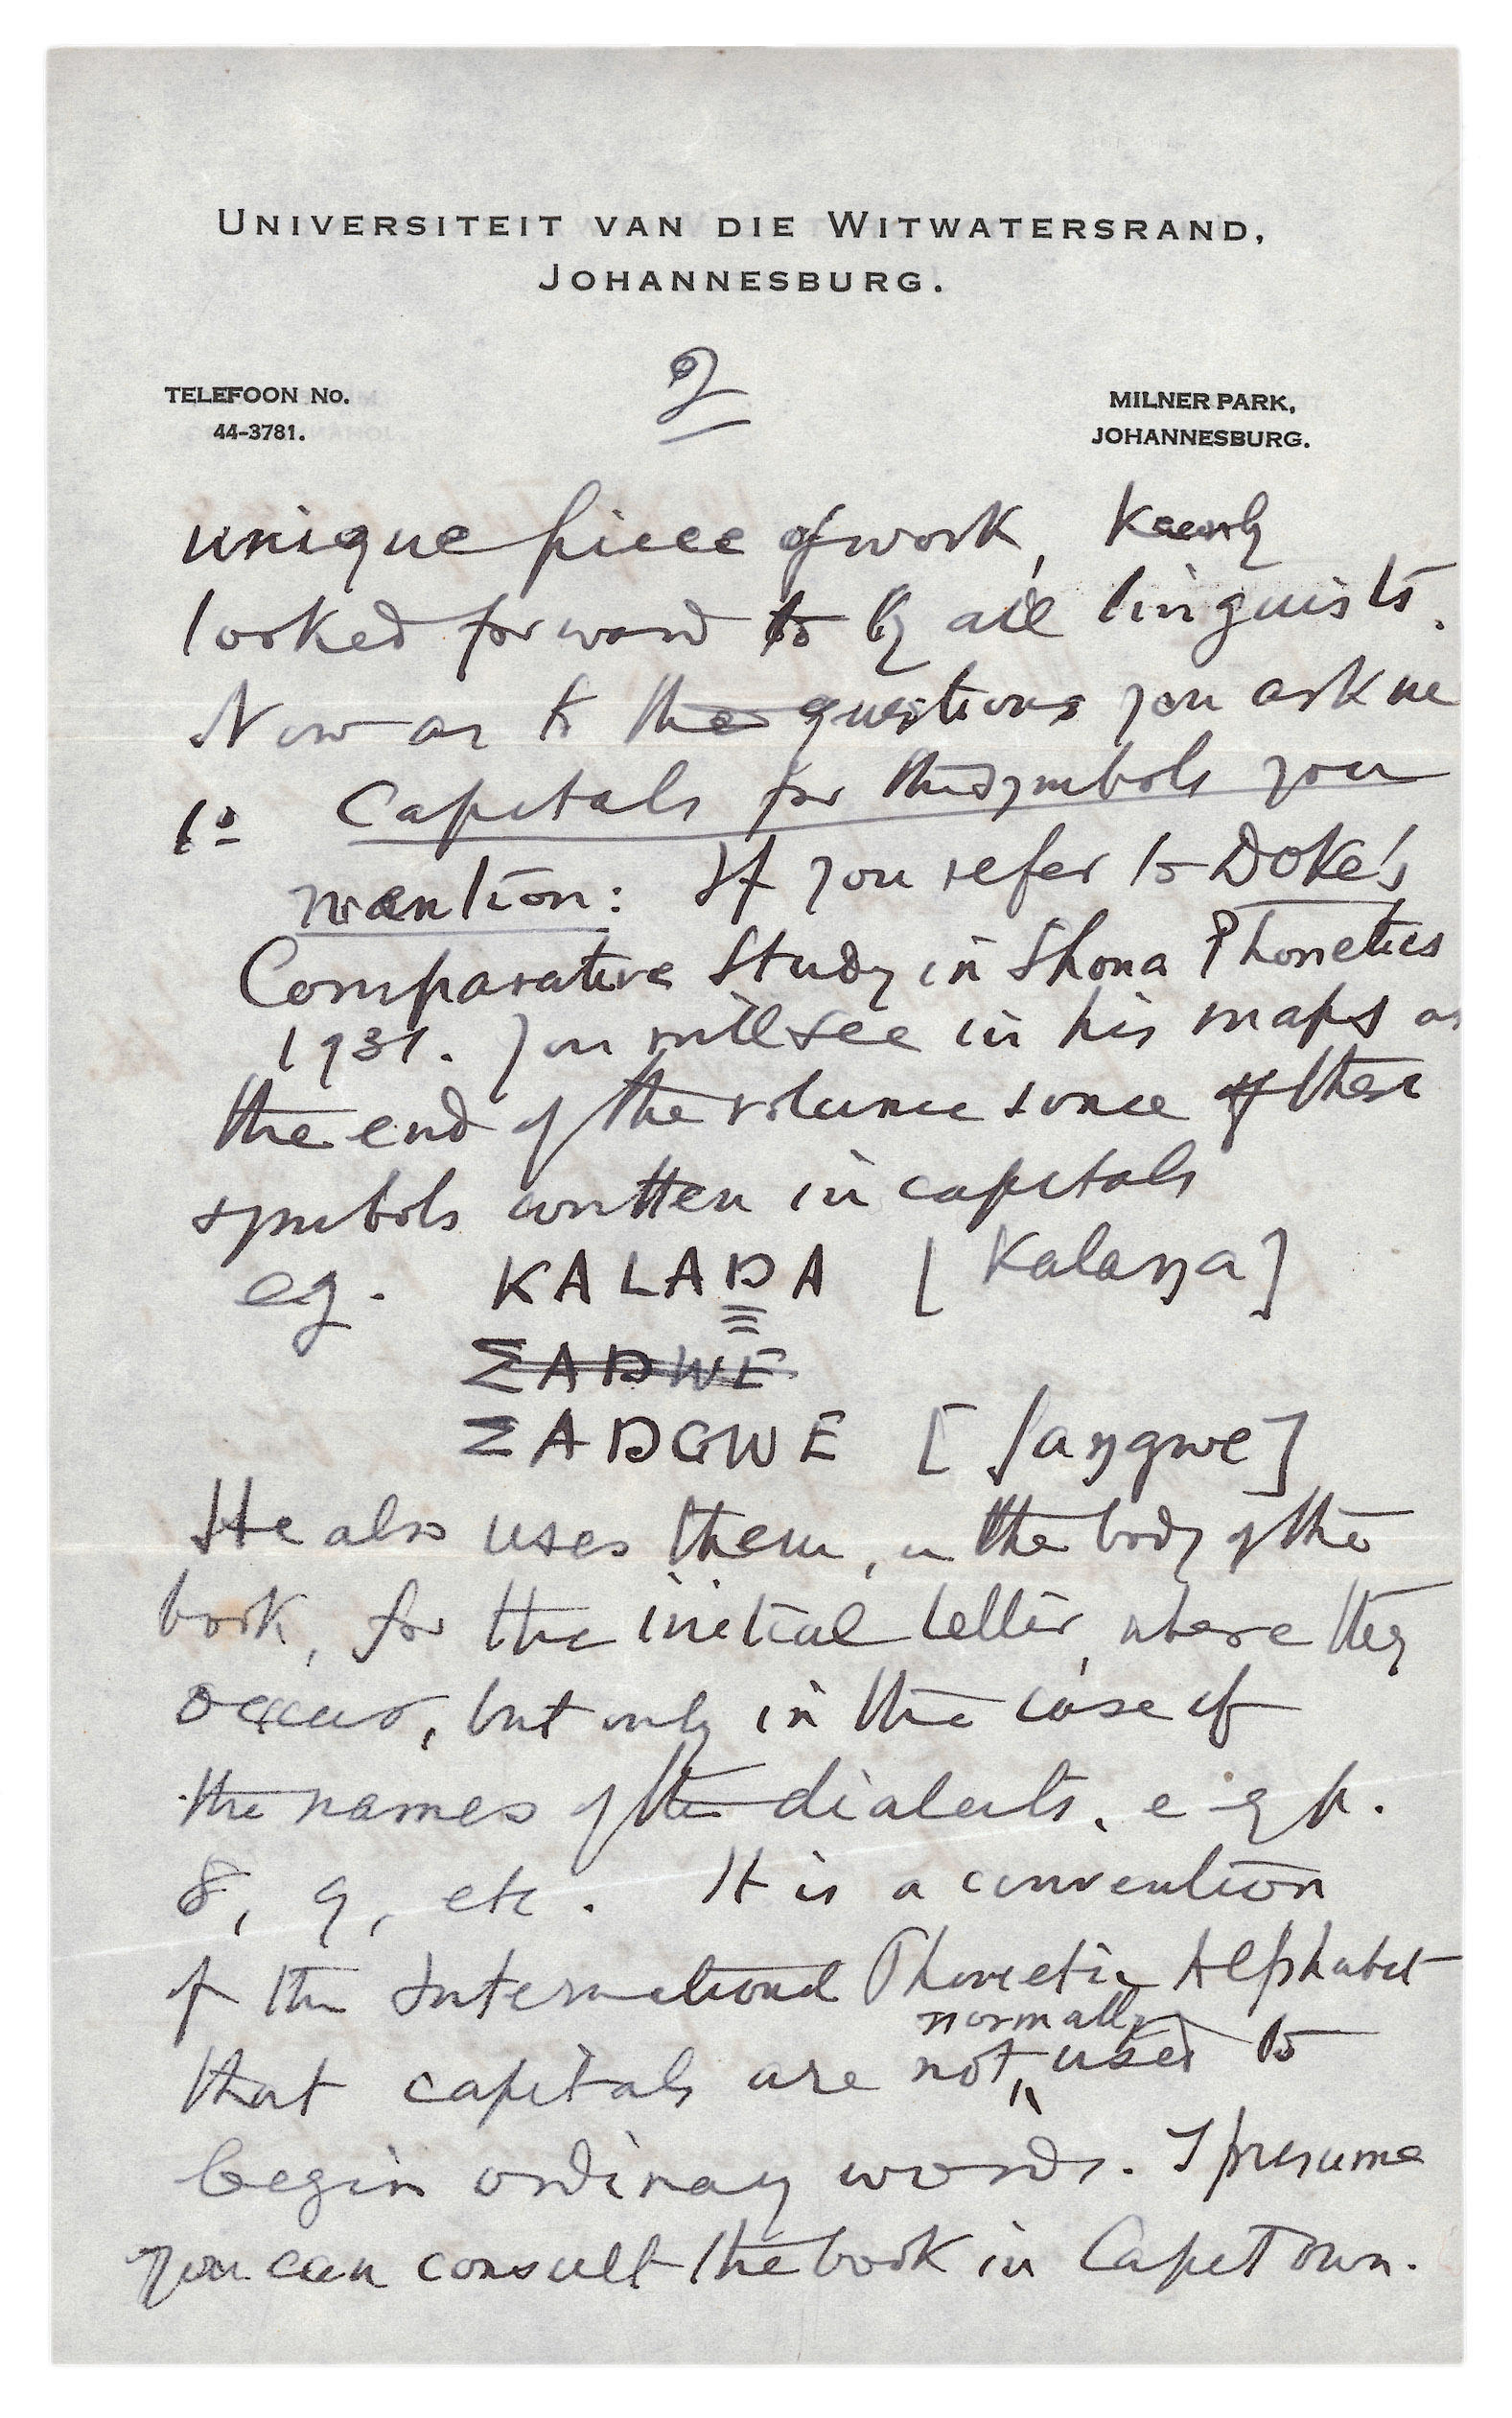 UNIVERSITEIT VAN DIE WITWATERSRAND,
JOHANNESBURG.
2
TELEFOON No.
44-3781.
MILNER PARK,
JOHANNESBURG.
unique piece of work, keenly
looked forward to by all linguists.
Now as to the questions you ask me
1º Capitals for the symbols you
mention: If you refer to Doke's
Comparative Study in Shona Phonetics
1931. you will see in his maps at
the end of the volume some of these
symbols written in capitals
eg. KALAŊA [Kalaŋa]
ƩAŊWE
ƩAŊGWE [ʃaŋgwe]
He also uses them, in the body of the
book, for the initial letter, where they
occur, but only in the case of
the names of the dialects, e.g. p.
8, 9, etc. It is a convention
of the International Phonetic Alphabet
that capitals are not normally used to
begin ordinary words. I presume
you can consult the book in Cape Town.